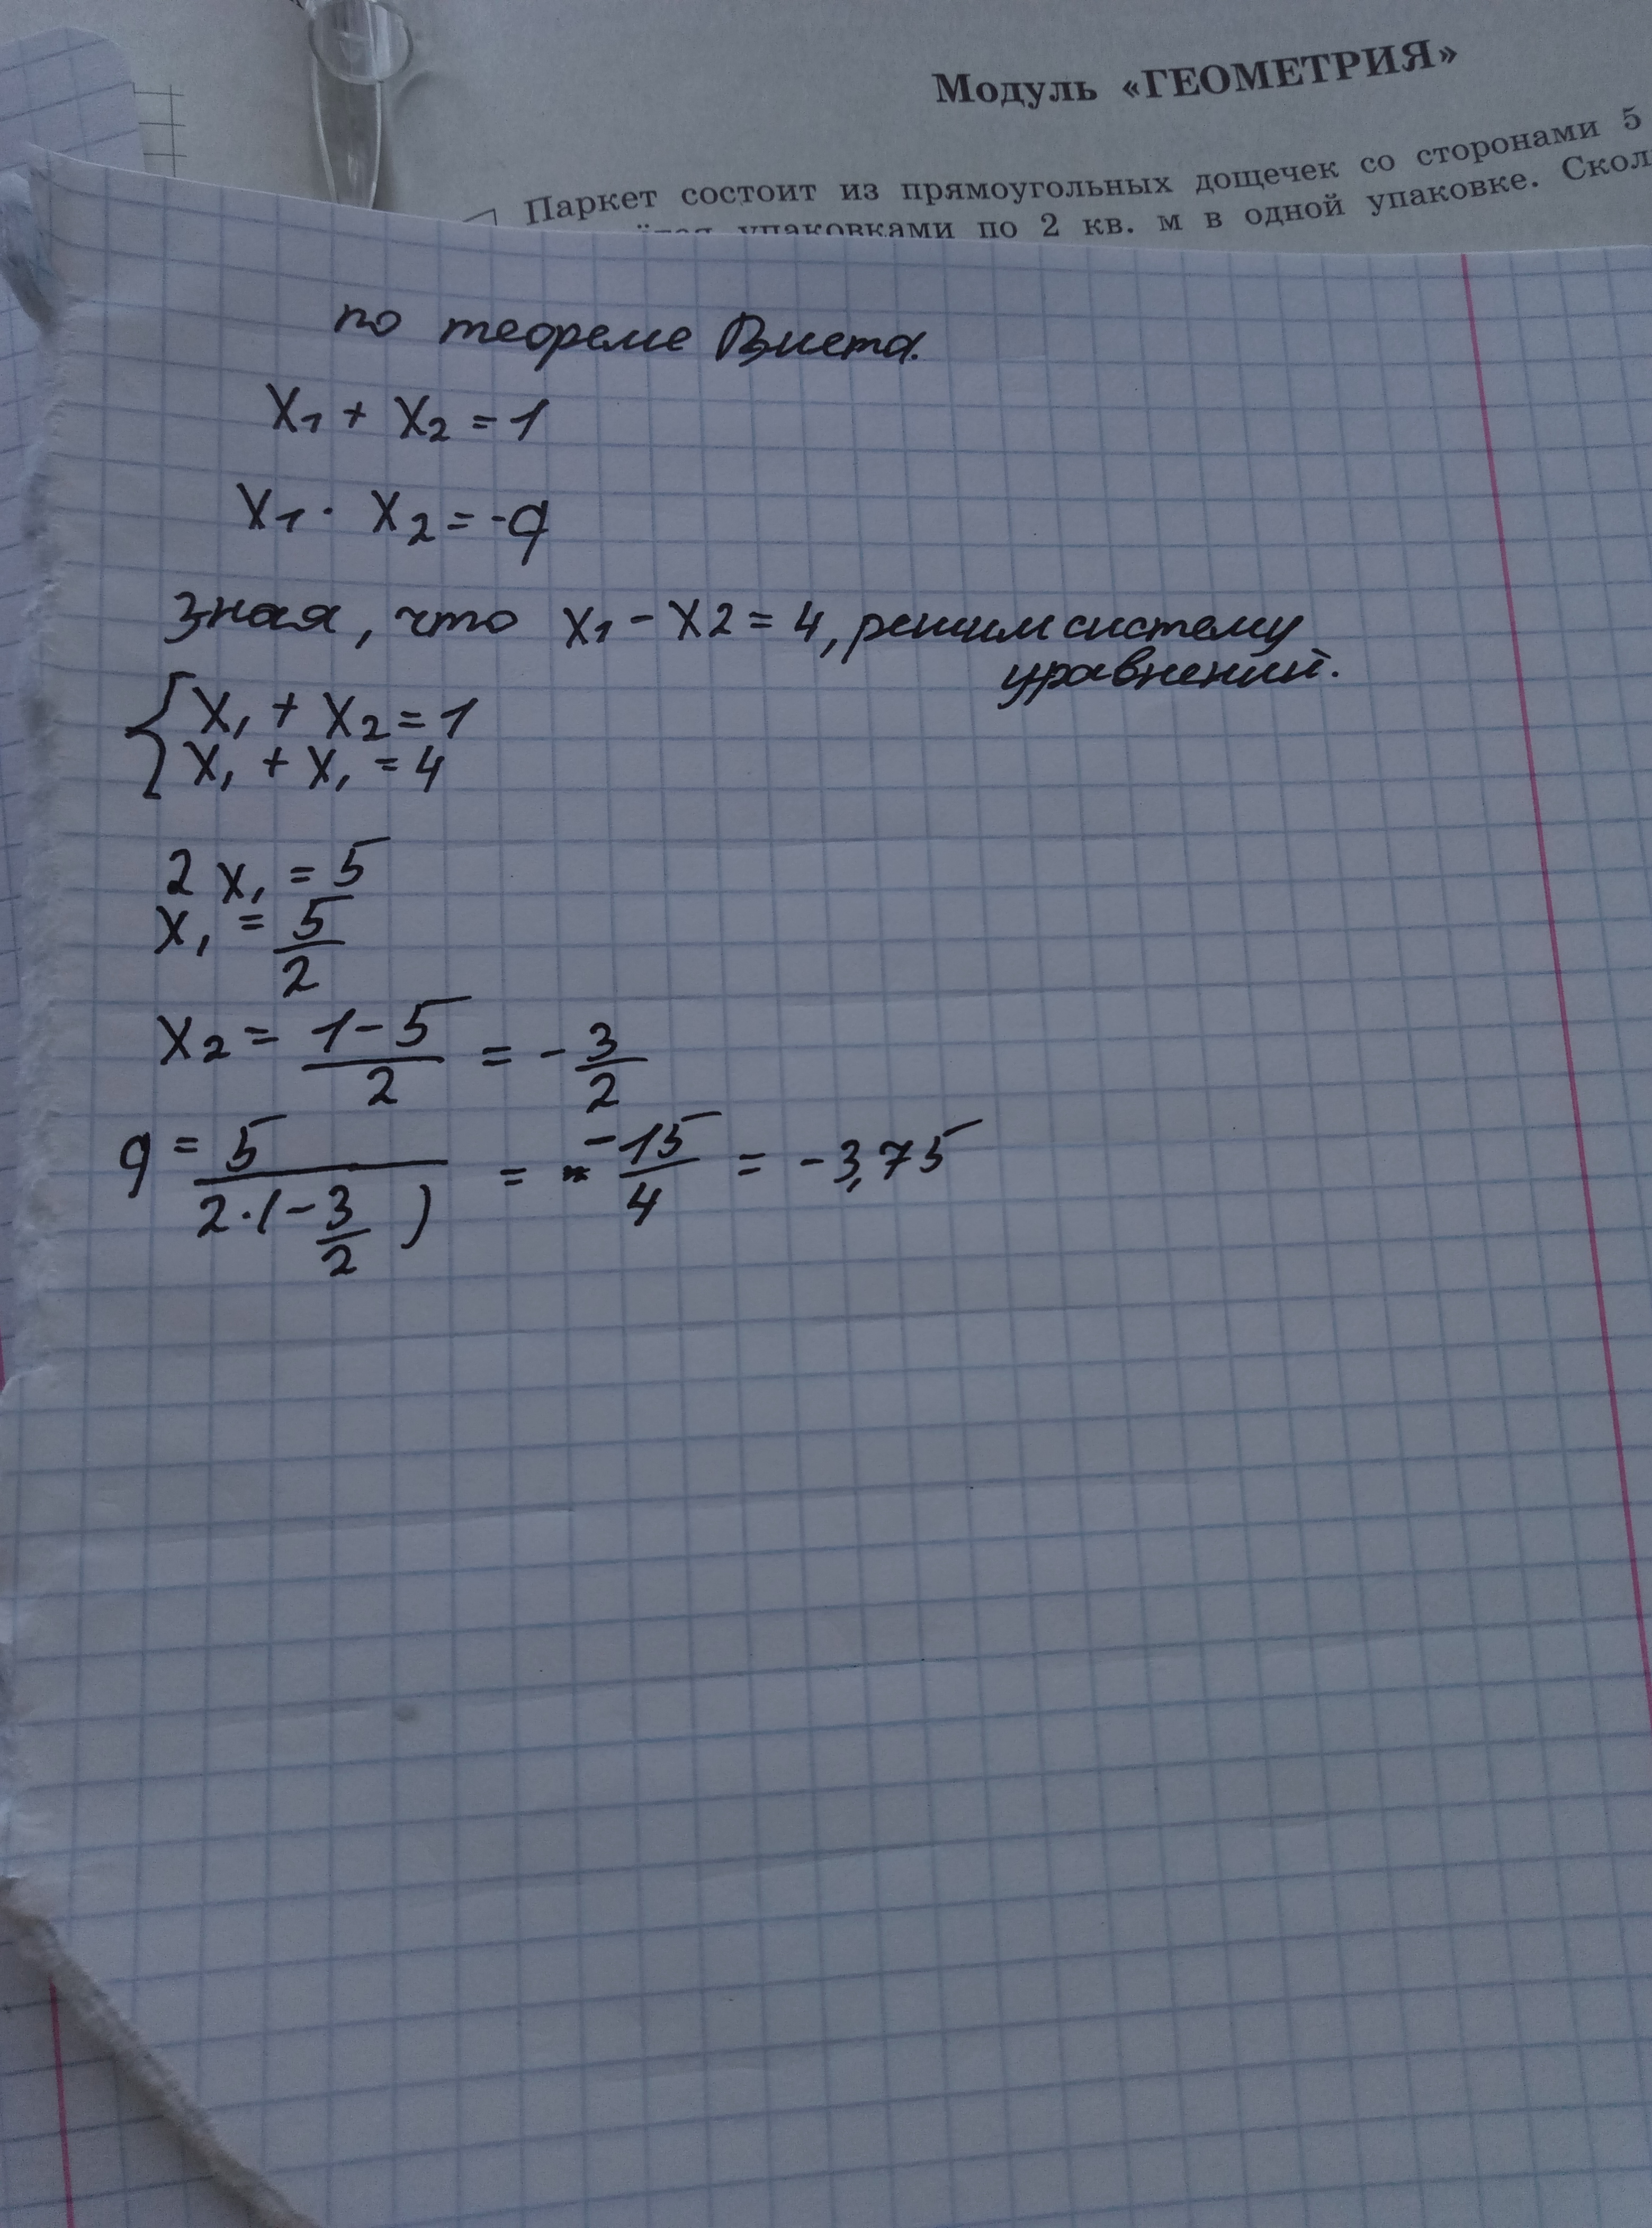 Модуль «ГЕОМЕТРИЯ»
Паркет состоит из прямоугольных дощечек со сторонами 5
упаковками по 2 кв. м в одной упаковке.
по теореме Виета.
x₁ + x₂ = 1
x₁ · x₂ = -q
Зная, что x₁ - x2 = 4, решим систему
уравнений.
{ x₁ + x₂ = 1
x₁ + x₁ = 4
2 x₁ = 5
x₁ = 5/2
x₂ = (1-5)/2 = - 3/2
q = 5/(2·(-3/2)) = - -15/4 = -3,75